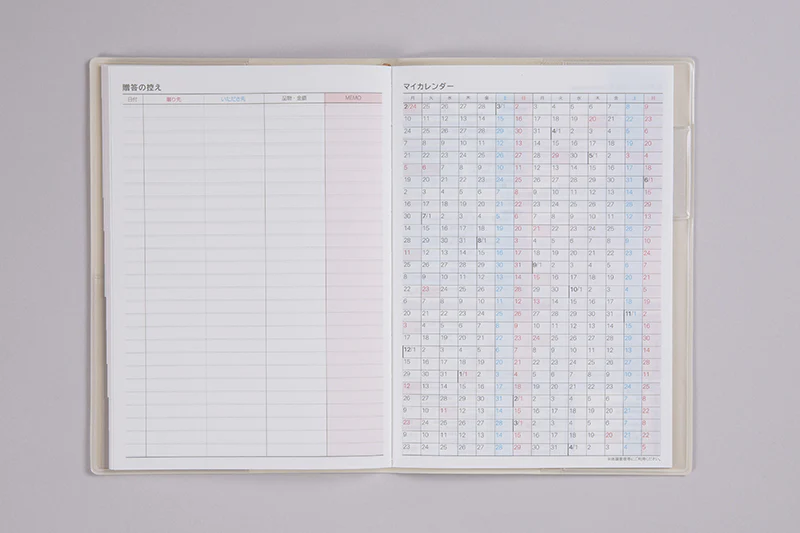 贈答の控え
日付 贈り先 いただき先 品物・金額 MEMO
マイカレンダー
月 火 水 木 金 土 日 月 火 水 木 金 土 日
2/24 25 26 27 28 3/1 2 3 4 5 6 7 8 9
10 11 12 13 14 15 16 17 18 19 20 21 22 23
24 25 26 27 28 29 30 31 4/1 2 3 4 5 6
7 8 9 10 11 12 13 14 15 16 17 18 19 20
21 22 23 24 25 26 27 28 29 30 5/1 2 3 4
5 6 7 8 9 10 11 12 13 14 15 16 17 18
19 20 21 22 23 24 25 26 27 28 29 30 31 6/1
2 3 4 5 6 7 8 9 10 11 12 13 14 15
16 17 18 19 20 21 22 23 24 25 26 27 28 29
30 7/1 2 3 4 5 6 7 8 9 10 11 12 13
14 15 16 17 18 19 20 21 22 23 24 25 26 27
28 29 30 31 8/1 2 3 4 5 6 7 8 9 10
11 12 13 14 15 16 17 18 19 20 21 22 23 24
25 26 27 28 29 30 31 9/1 2 3 4 5 6 7
8 9 10 11 12 13 14 15 16 17 18 19 20 21
22 23 24 25 26 27 28 29 30 10/1 2 3 4 5
6 7 8 9 10 11 12 13 14 15 16 17 18 19
20 21 22 23 24 25 26 27 28 29 30 31 11/1 2
3 4 5 6 7 8 9 10 11 12 13 14 15 16
17 18 19 20 21 22 23 24 25 26 27 28 29 30
12/1 2 3 4 5 6 7 8 9 10 11 12 13 14
15 16 17 18 19 20 21 22 23 24 25 26 27 28
29 30 31 1/1 2 3 4 5 6 7 8 9 10 11
12 13 14 15 16 17 18 19 20 21 22 23 24 25
26 27 28 29 30 31 2/1 2 3 4 5 6 7 8
9 10 11 12 13 14 15 16 17 18 19 20 21 22
23 24 25 26 27 28 3/1 2 3 4 5 6 7 8
9 10 11 12 13 14 15 16 17 18 19 20 21 22
23 24 25 26 27 28 29 30 31 4/1 2 3 4 5